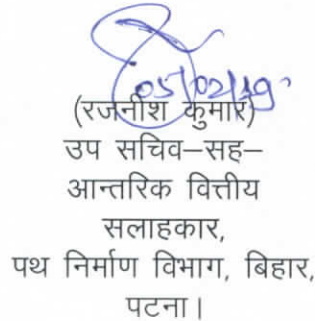 05/02/19
(रजनीश कुमार)
उप सचिव–सह–
आन्तरिक वित्तीय
सलाहकार,
पथ निर्माण विभाग, बिहार,
पटना।